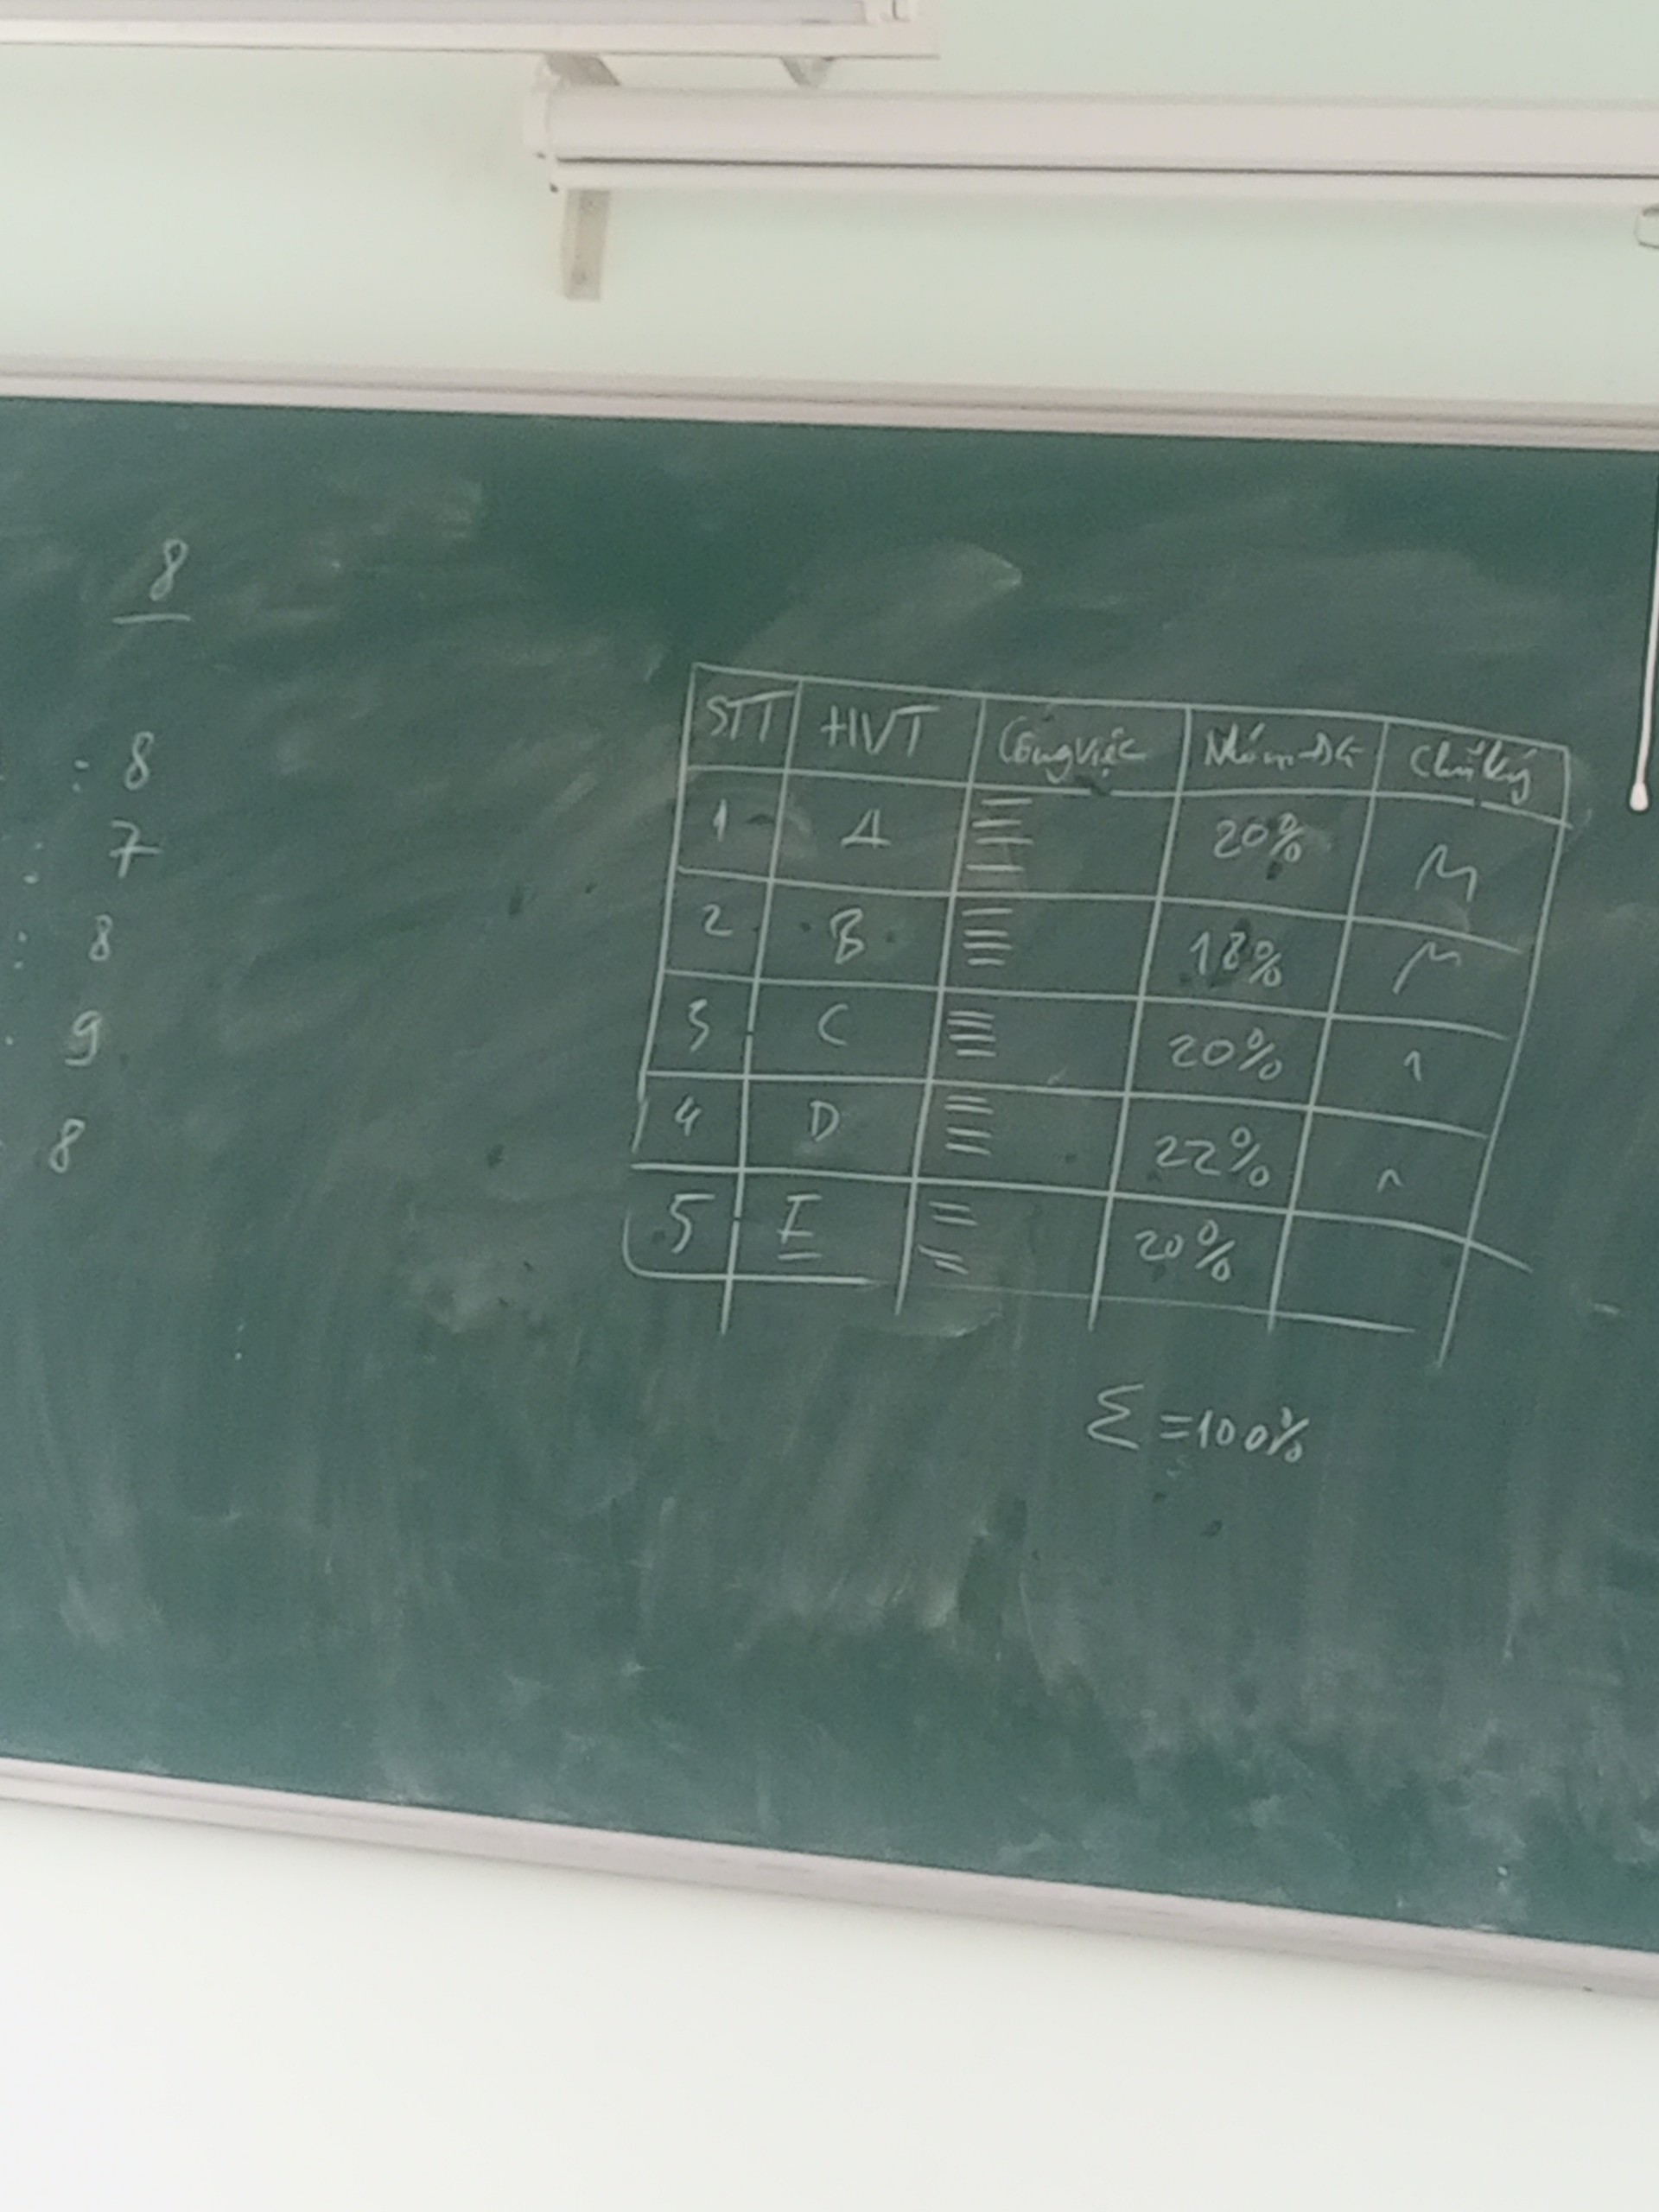 8
: 8
: 7
: 8
. 9
8
STT HVT Công việc Nhóm ĐG Chữ ký
1 A 20%
2 B 18%
3 C 20%
4 D 22%
5 E 20%
Σ = 100%